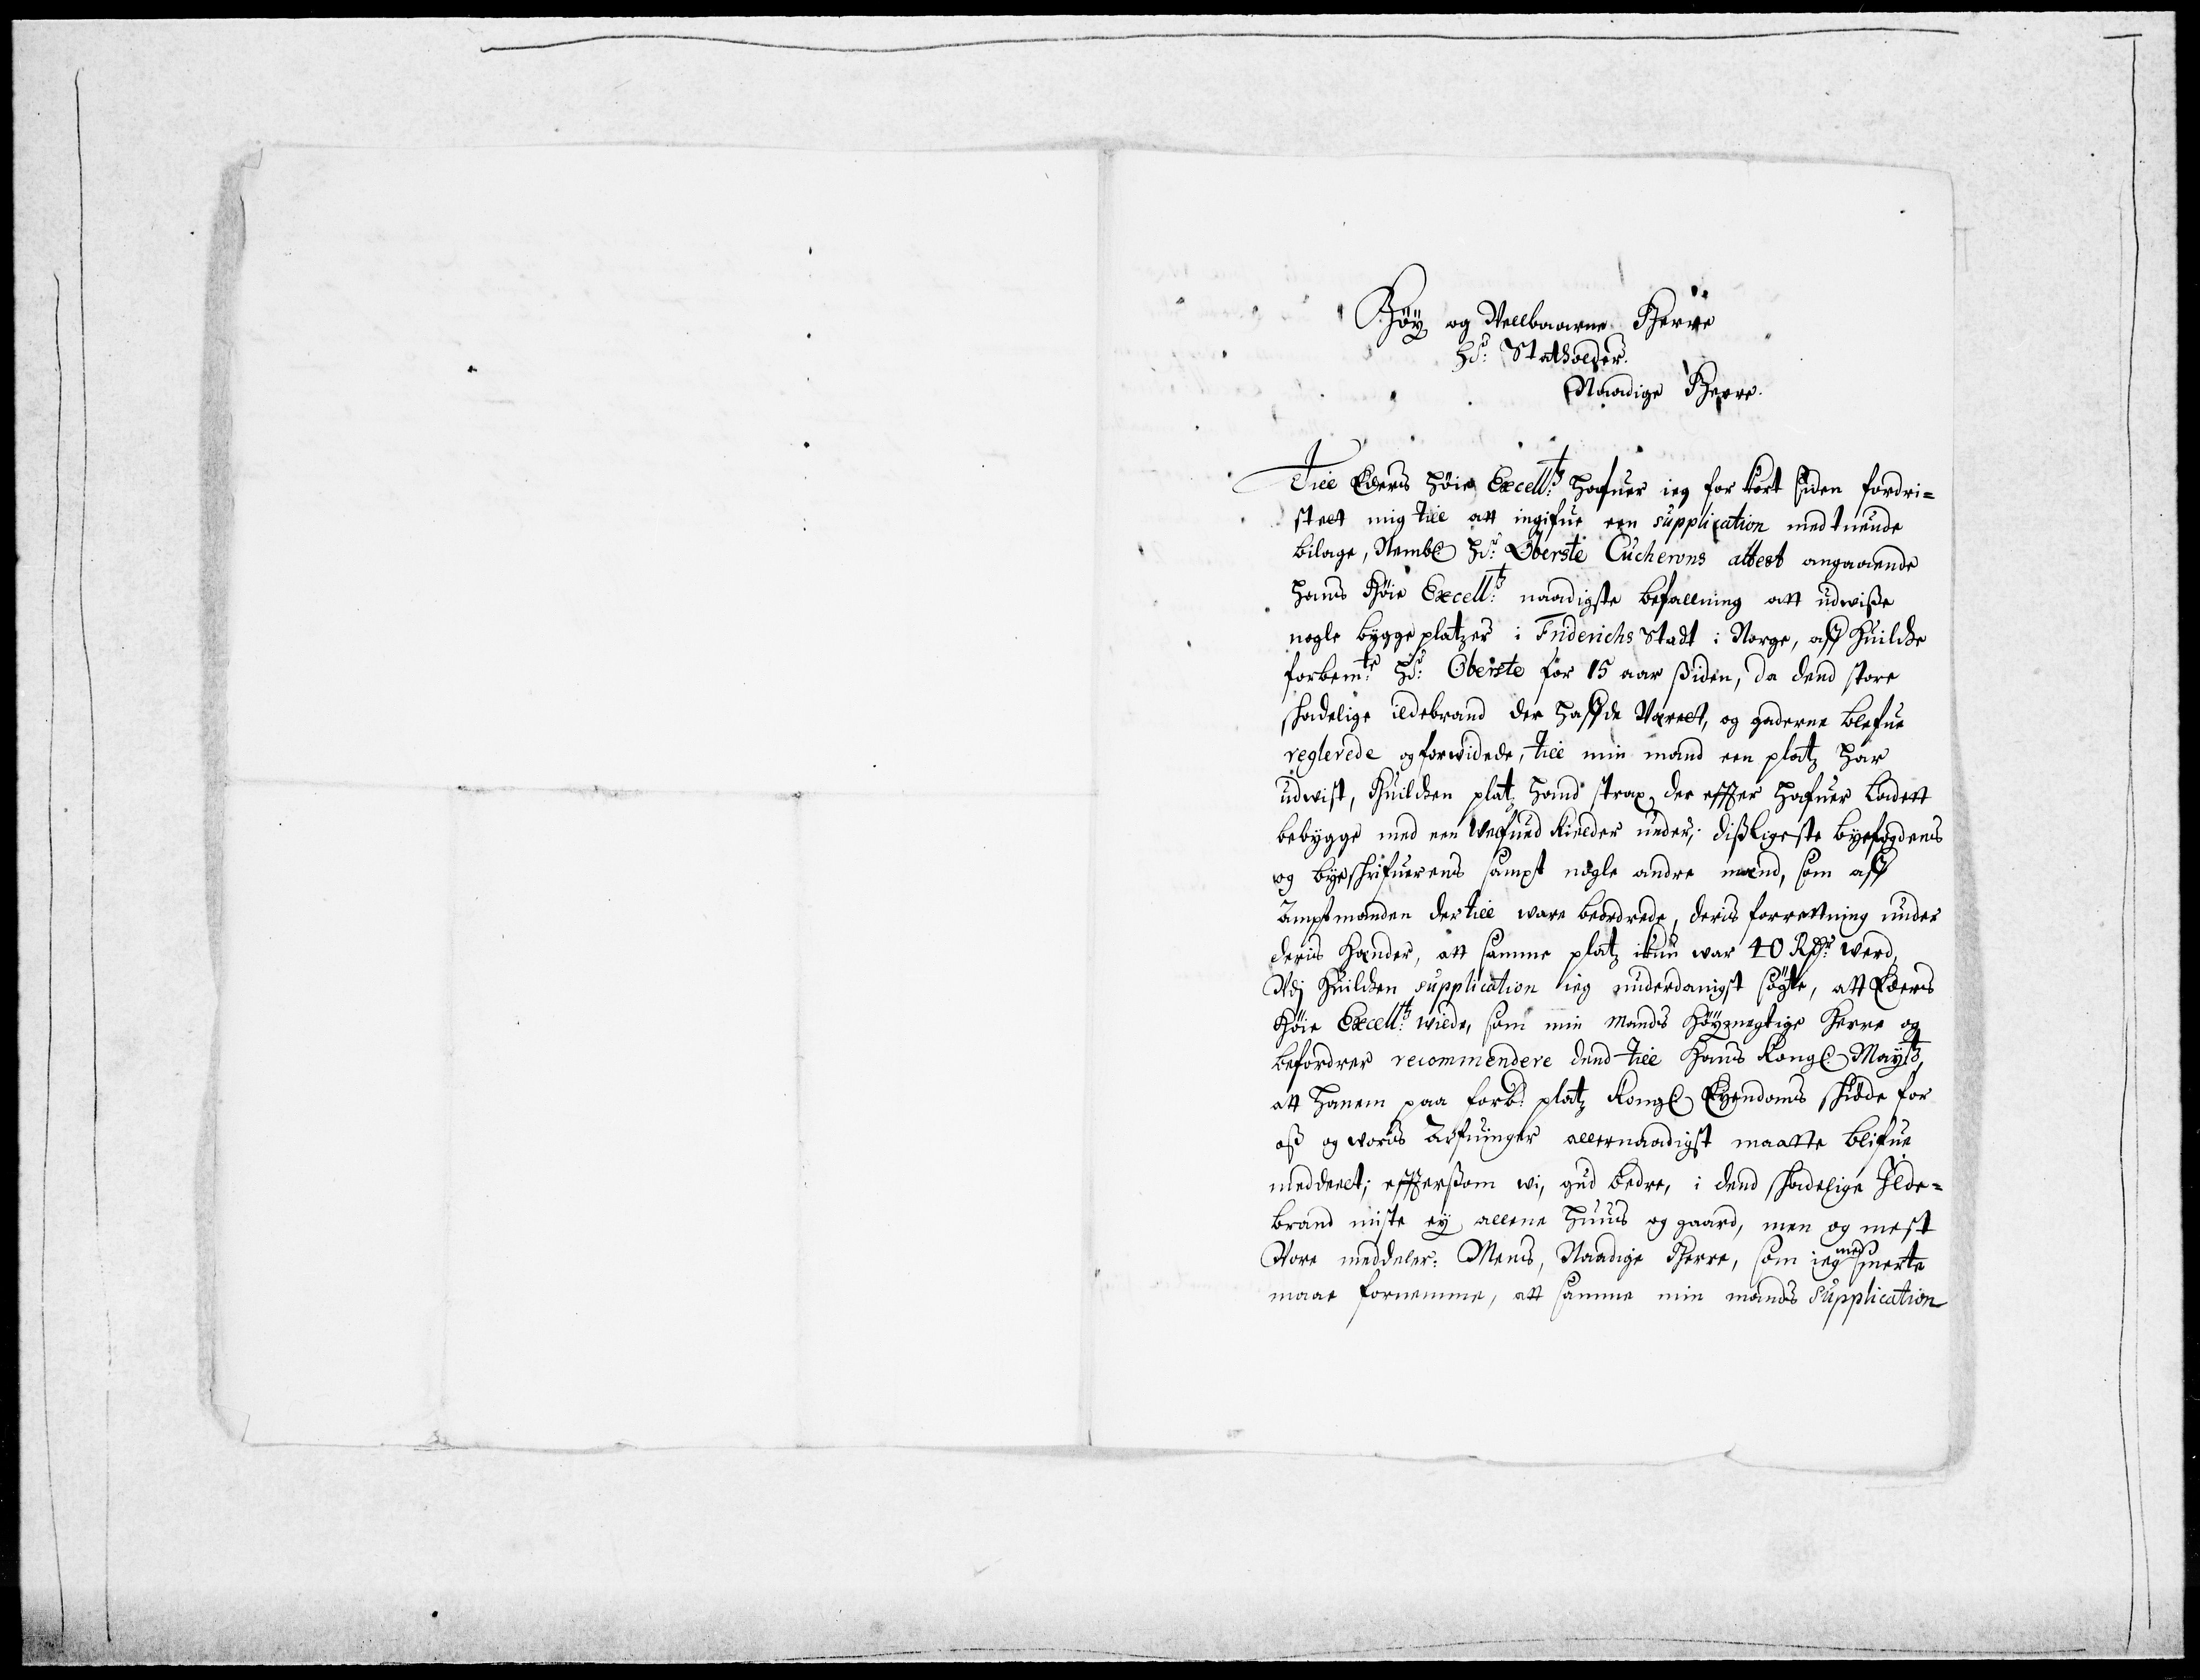 Høy og Wellbaarne Herre
Hr: Statholder.
Naadige Herre.
Till Eders Høie Excelltz: hafuer ieg for kort siden fordri=
stett mig till att ingifue een supplication med tuende
bilage, Nembl Hr: Oberste Cucherons attest angaaende
Hans Høie Excelltz: naadigste befalling att udwiße
nogle bygge platzer i Friderichs Stadt i Norge, aff huilcke
forbemte: Hr: Oberste for 15 aar ßiden, da dend store
skadelige ildebrand der haffde Wærett, og gaderne blefue
reglerede og forwidede, till min mand een platz har
udwist, Huilcken platz hand strax der effter hafuer ladett
bebygge med een Welfued Kielder under; dißligeste byefogdens
og byeskrifuerens sampt nogle andre mænd, som aff
Amptmanden dertill ware beordrede, deris forrettning under
deris Hænder, att samme platz ikun war 40 Rdr: werd,
Udj Huilcken supplication ieg underdanigst søgte, att Eders
Høie Excelltz: wilde, som min Mands Høymegtige Herre og
befordrer recommendere dend till Hans Kongl Maytz,
att hanem paa forbte platz Kongl Eyendoms skiøde for
oß og woris Arfuinger allernaadigst maatte blifue
meddeelt; effterßom wi, gud bedre, i dend skadelige Ilde=
brand miste ey allene Huus og gaard, men og mest
Wore meddeler: Mens, Naadige Herre, som ieg med smerte
maae fornemme, att samme min mands supplication